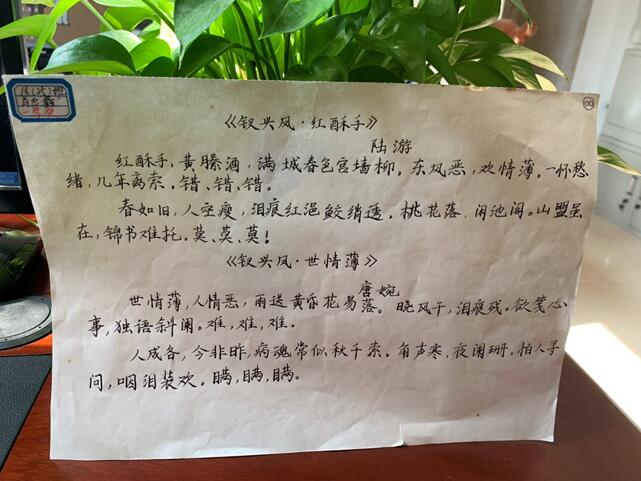 《钗头凤·红酥手》
陆游
红酥手，黄縢酒，满城春色宫墙柳。东风恶，欢情薄。一怀愁
绪，几年离索。错、错、错。
春如旧，人空瘦，泪痕红浥鲛绡透。桃花落，闲池阁。山盟虽
在，锦书难托。莫、莫、莫！
《钗头凤·世情薄》
唐婉
世情薄，人情恶，雨送黄昏花易落。晓风干，泪痕残。欲笺心
事，独语斜阑。难，难，难。
人成各，今非昨，病魂常似秋千索。角声寒，夜阑珊。怕人寻
问，咽泪装欢。瞒，瞒，瞒。